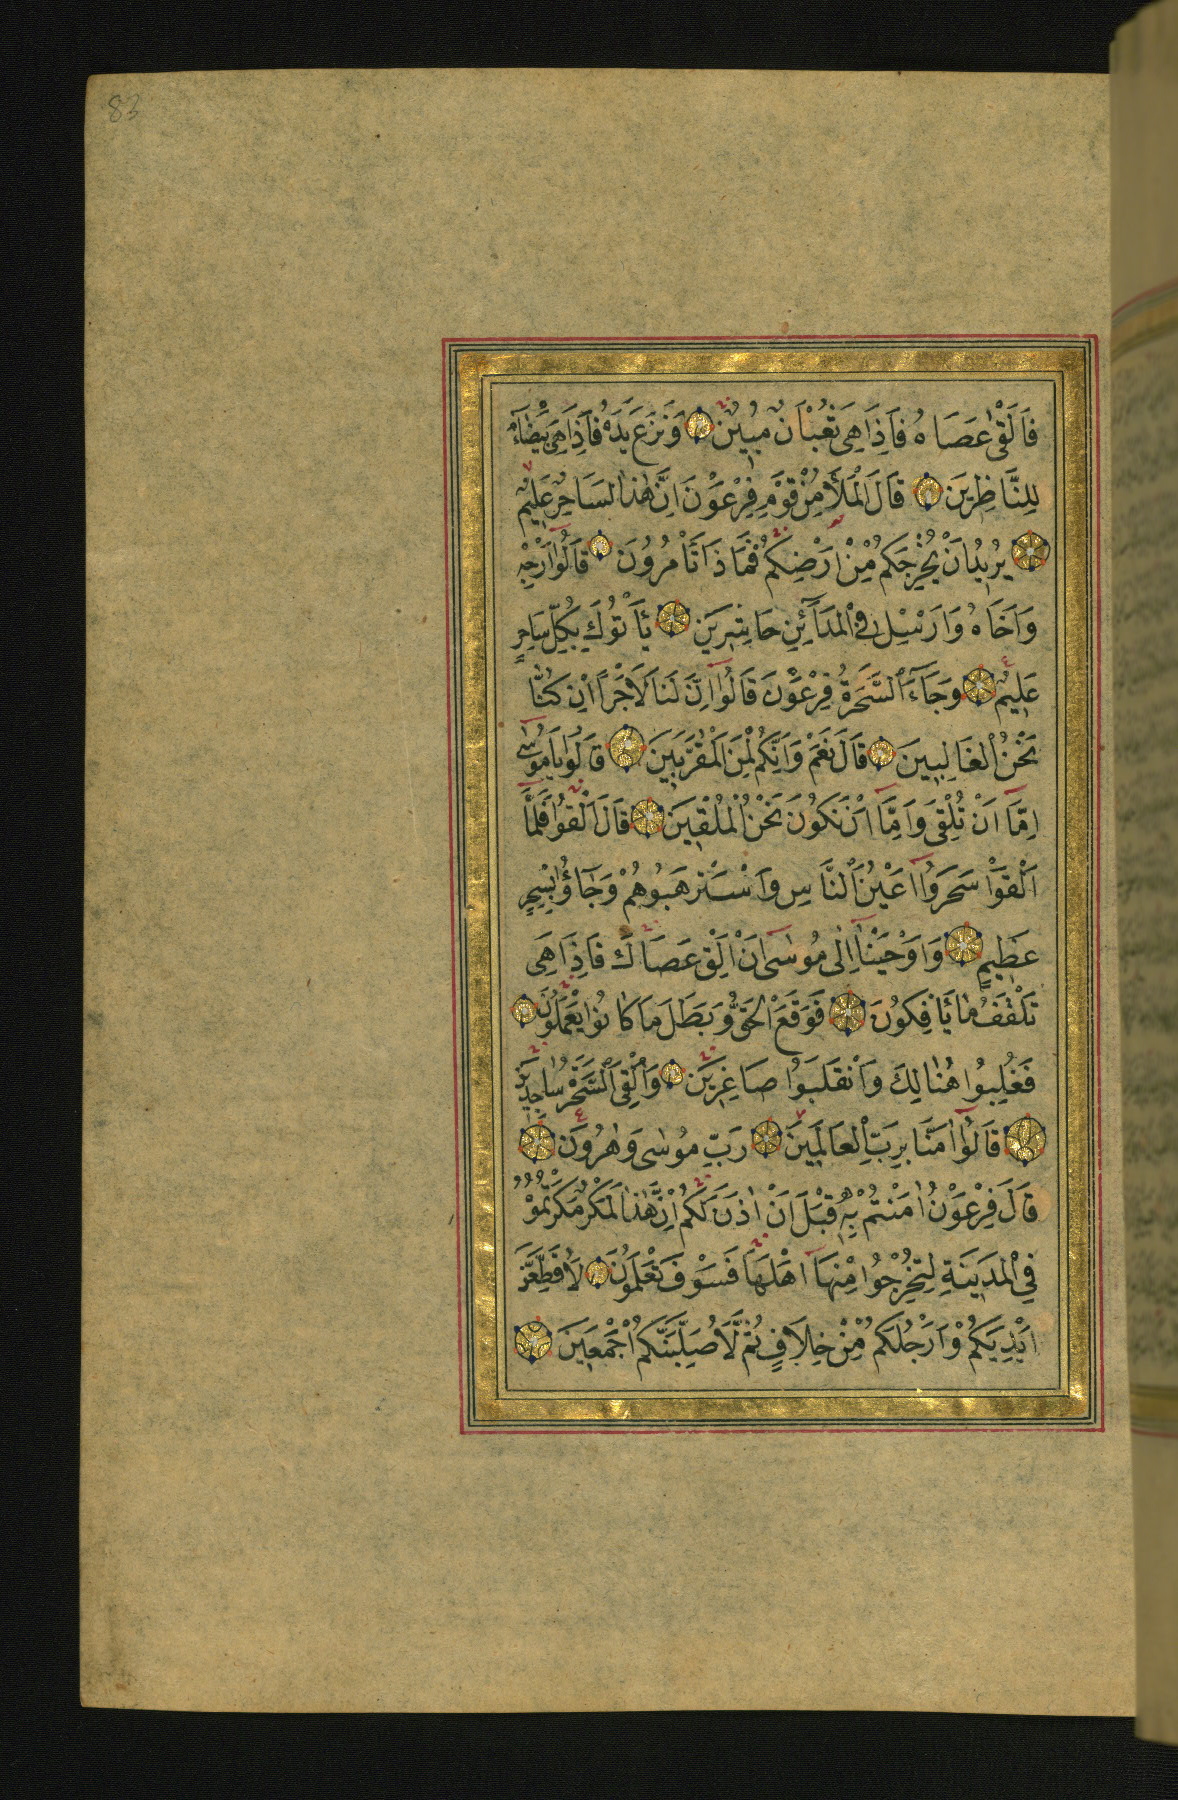 83
فَاَلْقٰى عَصَاهُ فَاِذَا هِىَ ثُعْبَانٌ مُبِينٌ وَنَزَعَ يَدَهُ فَاِذَا هِىَ بَيْضَٓاءُ
لِلنَّاظِرِينَ قَالَ الْمَلَأُ مِنْ قَوْمِ فِرْعَوْنَ اِنَّ هٰذَا لَسَاحِرٌ عَلِيمٌ
يُرِيدُ اَنْ يُخْرِجَكُمْ مِنْ اَرْضِكُمْ فَمَاذَا تَأْمُرُونَ قَالُٓوا اَرْجِهْ
وَاَخَاهُ وَاَرْسِلْ فِى الْمَدَٓائِنِ حَاشِرِينَ يَأْتُوكَ بِكُلِّ سَاحِرٍ
عَلِيمٍ وَجَٓاءَ السَّحَرَةُ فِرْعَوْنَ قَالُٓوا اِنَّ لَنَا لَاَجْرًا اِنْ كُنَّا
نَحْنُ الْغَالِبِينَ قَالَ نَعَمْ وَاِنَّكُمْ لَمِنَ الْمُقَرَّبِينَ قَالُوا يَا مُوسٰٓى
اِمَّٓا اَنْ تُلْقِىَ وَاِمَّٓا اَنْ نَكُونَ نَحْنُ الْمُلْقِينَ قَالَ اَلْقُوا فَلَمَّٓا
اَلْقَوْا سَحَرُٓوا اَعْيُنَ النَّاسِ وَاسْتَرْهَبُوهُمْ وَجَٓاؤُ بِسِحْرٍ
عَظِيمٍ وَاَوْحَيْنَٓا اِلٰى مُوسٰٓى اَنْ اَلْقِ عَصَاكَ فَاِذَا هِىَ
تَلْقَفُ مَا يَأْفِكُونَ فَوَقَعَ الْحَقُّ وَبَطَلَ مَا كَانُوا يَعْمَلُونَ
فَغُلِبُوا هُنَالِكَ وَانْقَلَبُوا صَاغِرِينَ وَاُلْقِىَ السَّحَرَةُ سَاجِدِينَ
قَالُٓوا اٰمَنَّا بِرَبِّ الْعَالَمِينَ رَبِّ مُوسٰى وَهٰرُونَ
قَالَ فِرْعَوْنُ اٰمَنْتُمْ بِهٖ قَبْلَ اَنْ اٰذَنَ لَكُمْ اِنَّ هٰذَا لَمَكْرٌ مَكَرْتُمُوهُ
فِى الْمَدِينَةِ لِتُخْرِجُوا مِنْهَٓا اَهْلَهَا فَسَوْفَ تَعْلَمُونَ لَاُقَطِّعَنَّ
اَيْدِيَكُمْ وَاَرْجُلَكُمْ مِنْ خِلَافٍ ثُمَّ لَاُصَلِّبَنَّكُمْ اَجْمَعِينَ